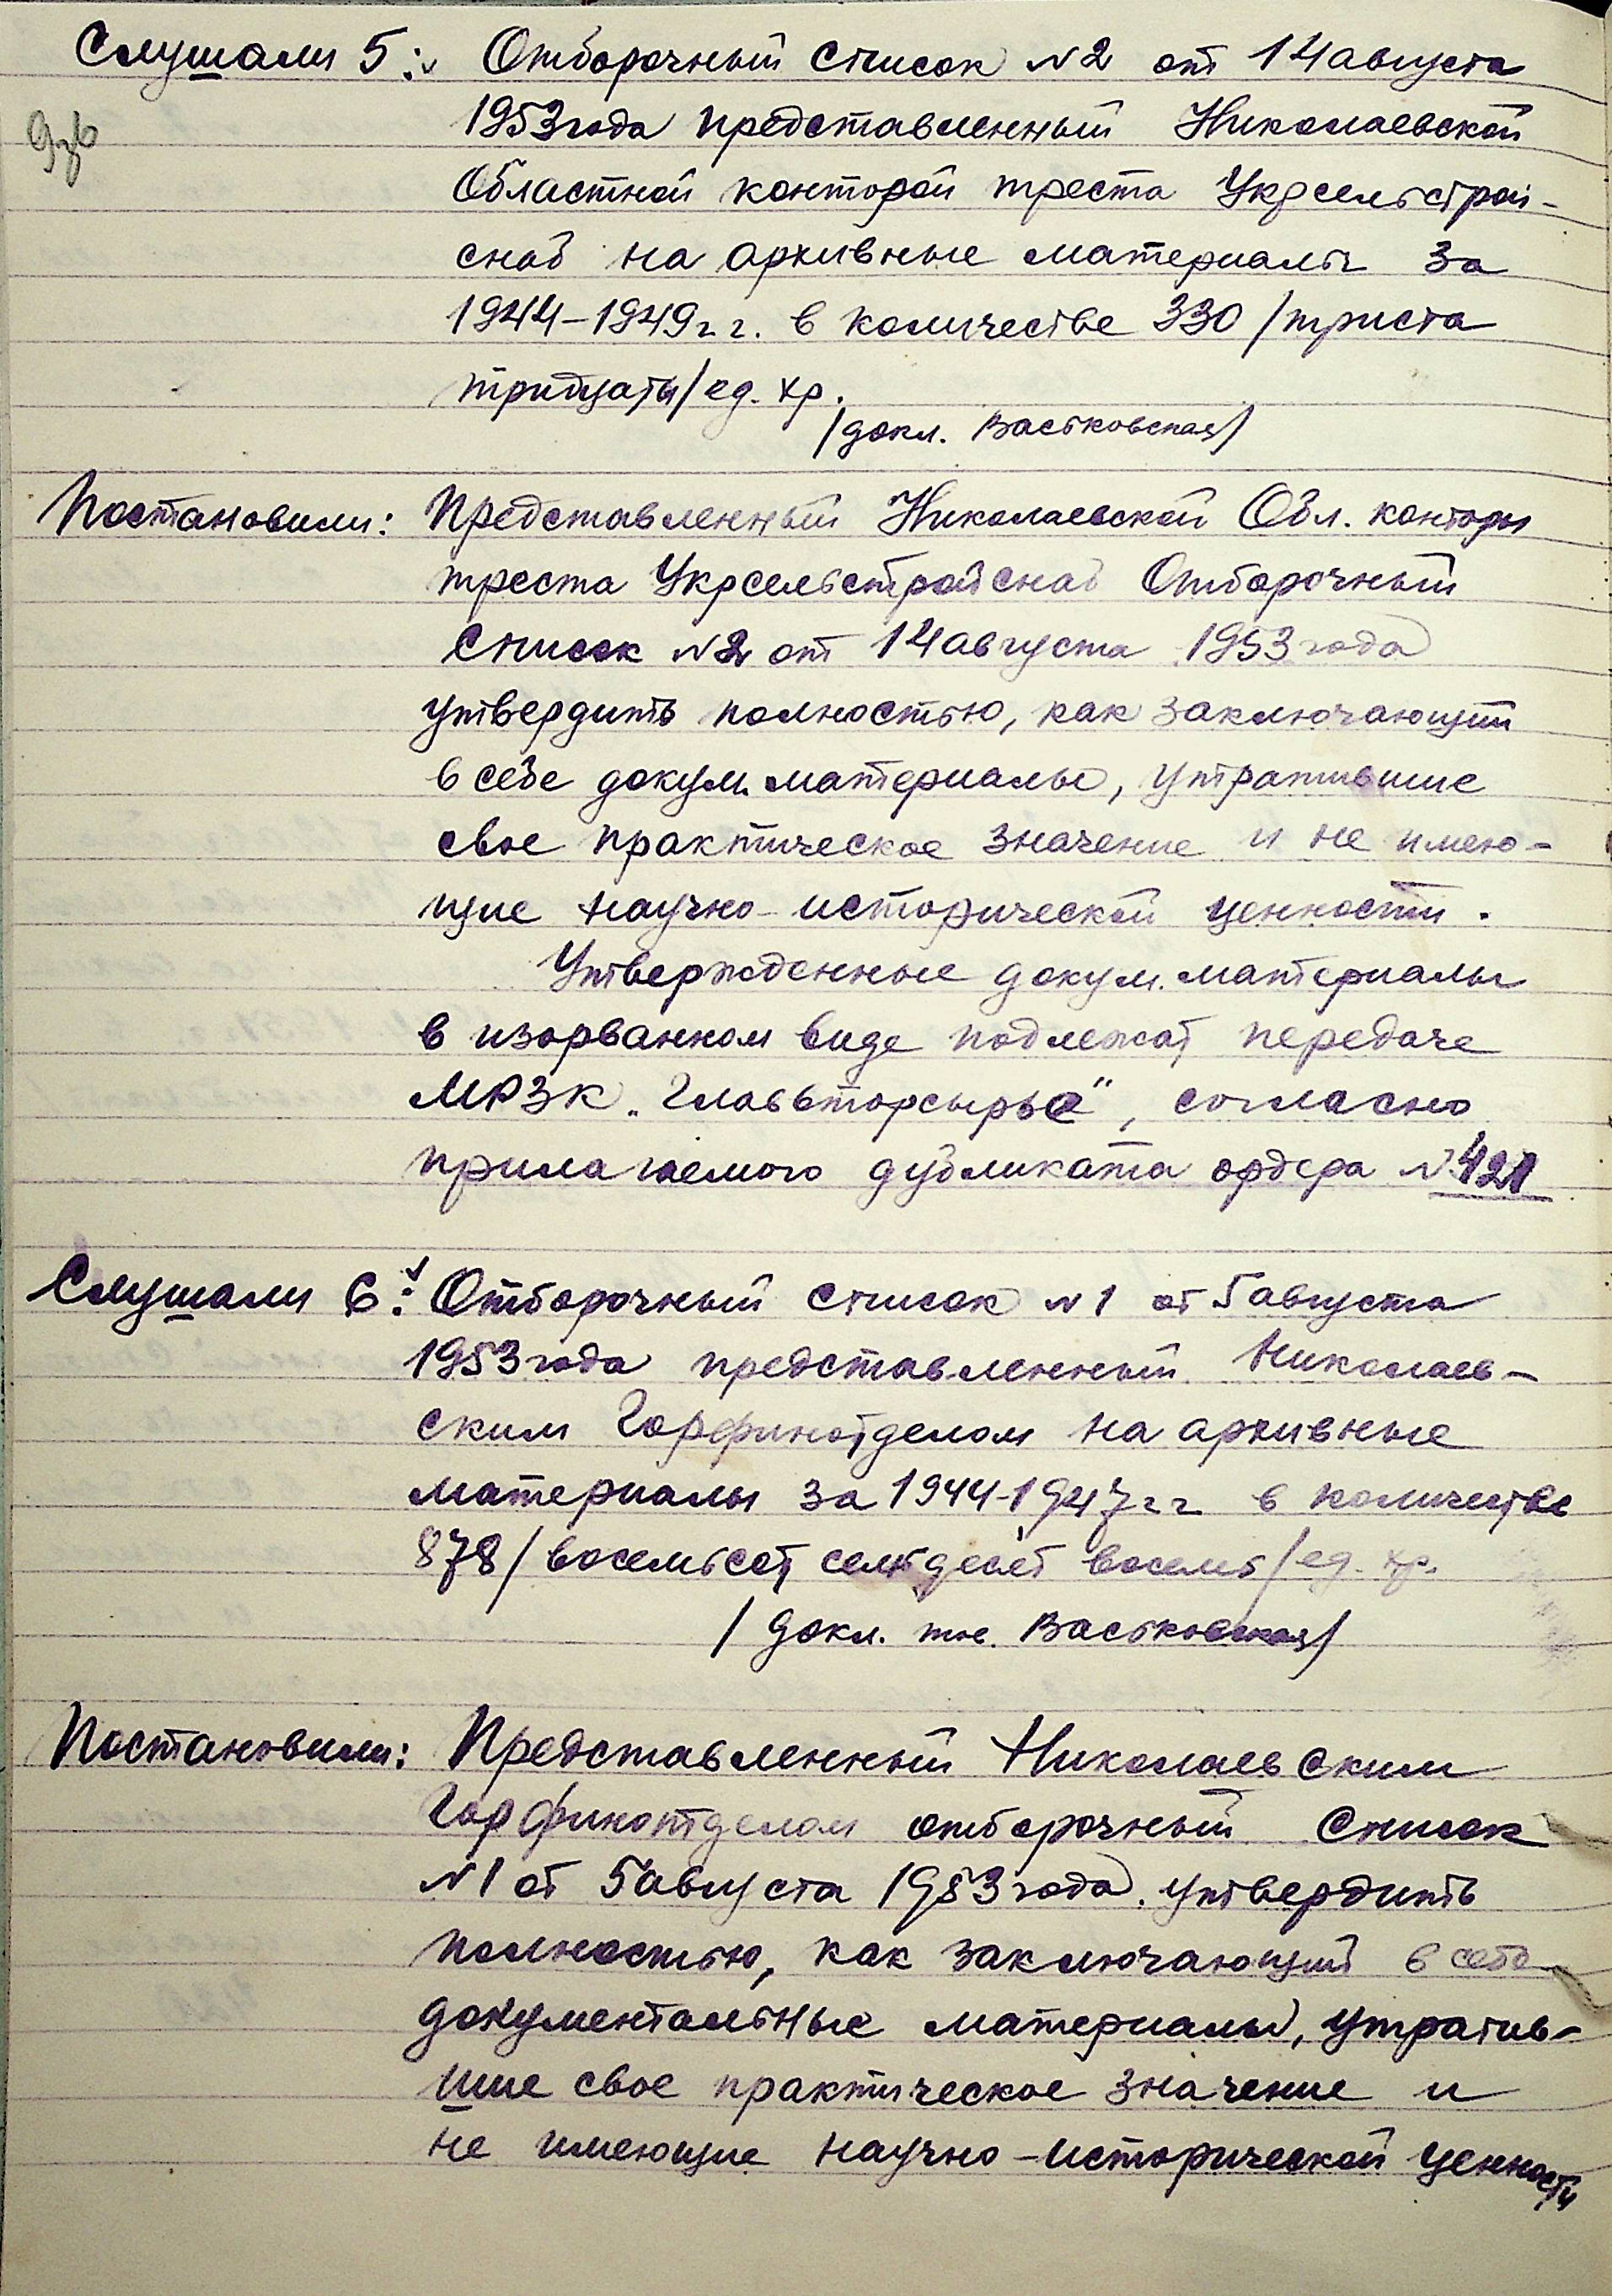 Слушали 5: Отборочный список №2 от 14 августа
1953 года представленный Николаевской
Областной конторой треста Укрсельстрой-
снаб на архивные материалы за
1944-1949 г.г. в количестве 330 /триста
тридцать/ ед. хр.
/докл. Васьковская/
Постановили: Представленный Николаевской Обл. конторы
треста Укрсельстройснаб Отборочный
список №2 от 14 августа 1953 года
утвердить полностью, как заключающий
в себе докум. материалы, утратившие
свое практическое значение и не имею-
щие научно-исторической ценности.
Утвержденные докум. материалы
в изорванном виде подлежат передаче
МРЗК „Главвторсырье", согласно
прилагаемого дубликата ордера №421
Слушали 6: Отборочный список №1 от 5 августа
1953 года представленный Николаев-
ским Горфинотделом на архивные
материалы за 1944-1947 г г в количестве
878 /восемьсот семьдесят восемь/ ед. хр.
/докл. тов. Васьковская/
Постановили: Представленный Николаевским
Горфинотделом отборочный список
№1 от 5 августа 1953 года. утвердить
полностью, как заключающий в себе
документальные материалы, утратив-
шие свое практическое значение и
не имеющие научно-исторической ценности